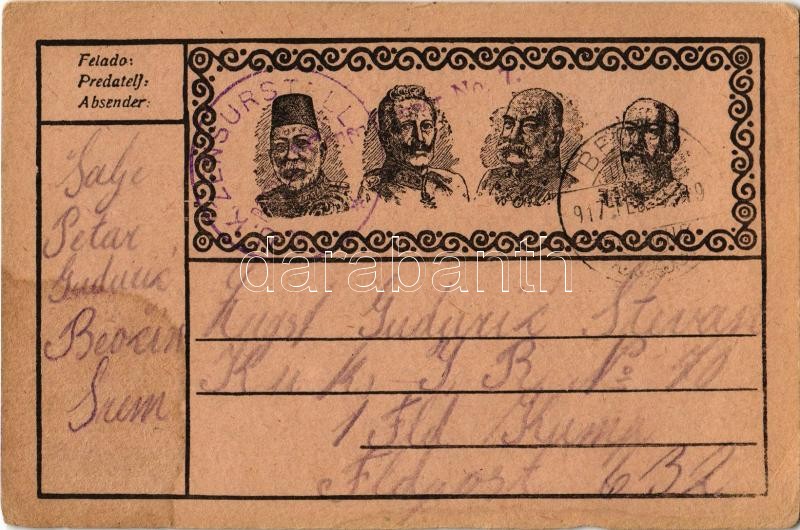 Felado:
Predatelj:
Absender:
ZENSURSTELLE
No. 7.
BEO
917
Šalje
Petar
Gudurić
Beočin
Srem
darabanth
Gudurić Stevan
K. u. k. I R. No 70
1 Fld Komp
Fldpost 632